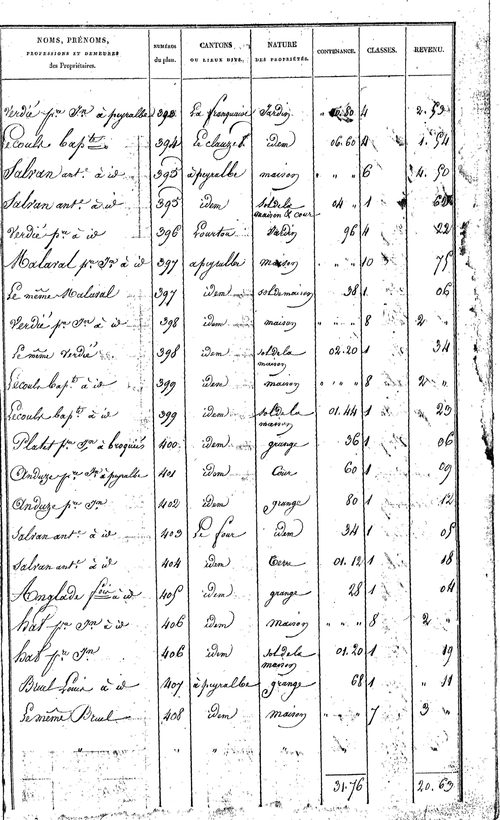 NOMS, PRÉNOMS, PROFESSIONS ET DEMEURES des Propriétaires. NUMÉROS du plan. CANTONS OU LIEUX DITS. NATURE DES PROPRIÉTÉS. CONTENANCE. CLASSES. REVENU.
Verdié pre Jn à peyralbe 393 La françoise Jardin " 10.80 4 2.59
Lecouls bapte 394 Le clauzel idem 06.60 4 1.54
Salvan ante à id 395 à peyralbe maison " " " 6 4.50
Salvan ante à id 395 idem sol de la maison & cour 04 " 1
Verdié pre à id 396 Jardin 96 4 22
Malaval pre Jn à id 397 a peyralbe maison " " " 10 75
Le même Malaval 397 idem sol de maison 38 1 06
Verdié pre Jn à id 398 idem maison " " " 8 2 "
Le même Verdié 398 idem sol de la maison 02.20 1 34
Lecouls bapte à id 399 idem maison " " " 8 2 "
Lecouls bapte à id 399 idem sol de la maison 01.44 1 " 23
pre Jn à broquiés 400 idem grange 36 1 06
Anduze pre Jn à peyralbe 401 idem Cour 60 1 09
Anduze pre Jn 402 idem grange 80 1 12
Salvan ante à id 403 Le four idem 34 1 05
Salvan ante à id 404 idem Terre 01.12 1 18
Anglade à id 405 idem grange 28 1 04
pre Jn à id 406 idem maison " " " 8 2 "
pre Jn 406 idem sol de la maison 01.20 1 19
Bruel Louis à id 407 à peyralbe grange 68 1 " 11
Le même Bruel 408 idem maison " " " 7 3 "
" " " "
31.76 20.63